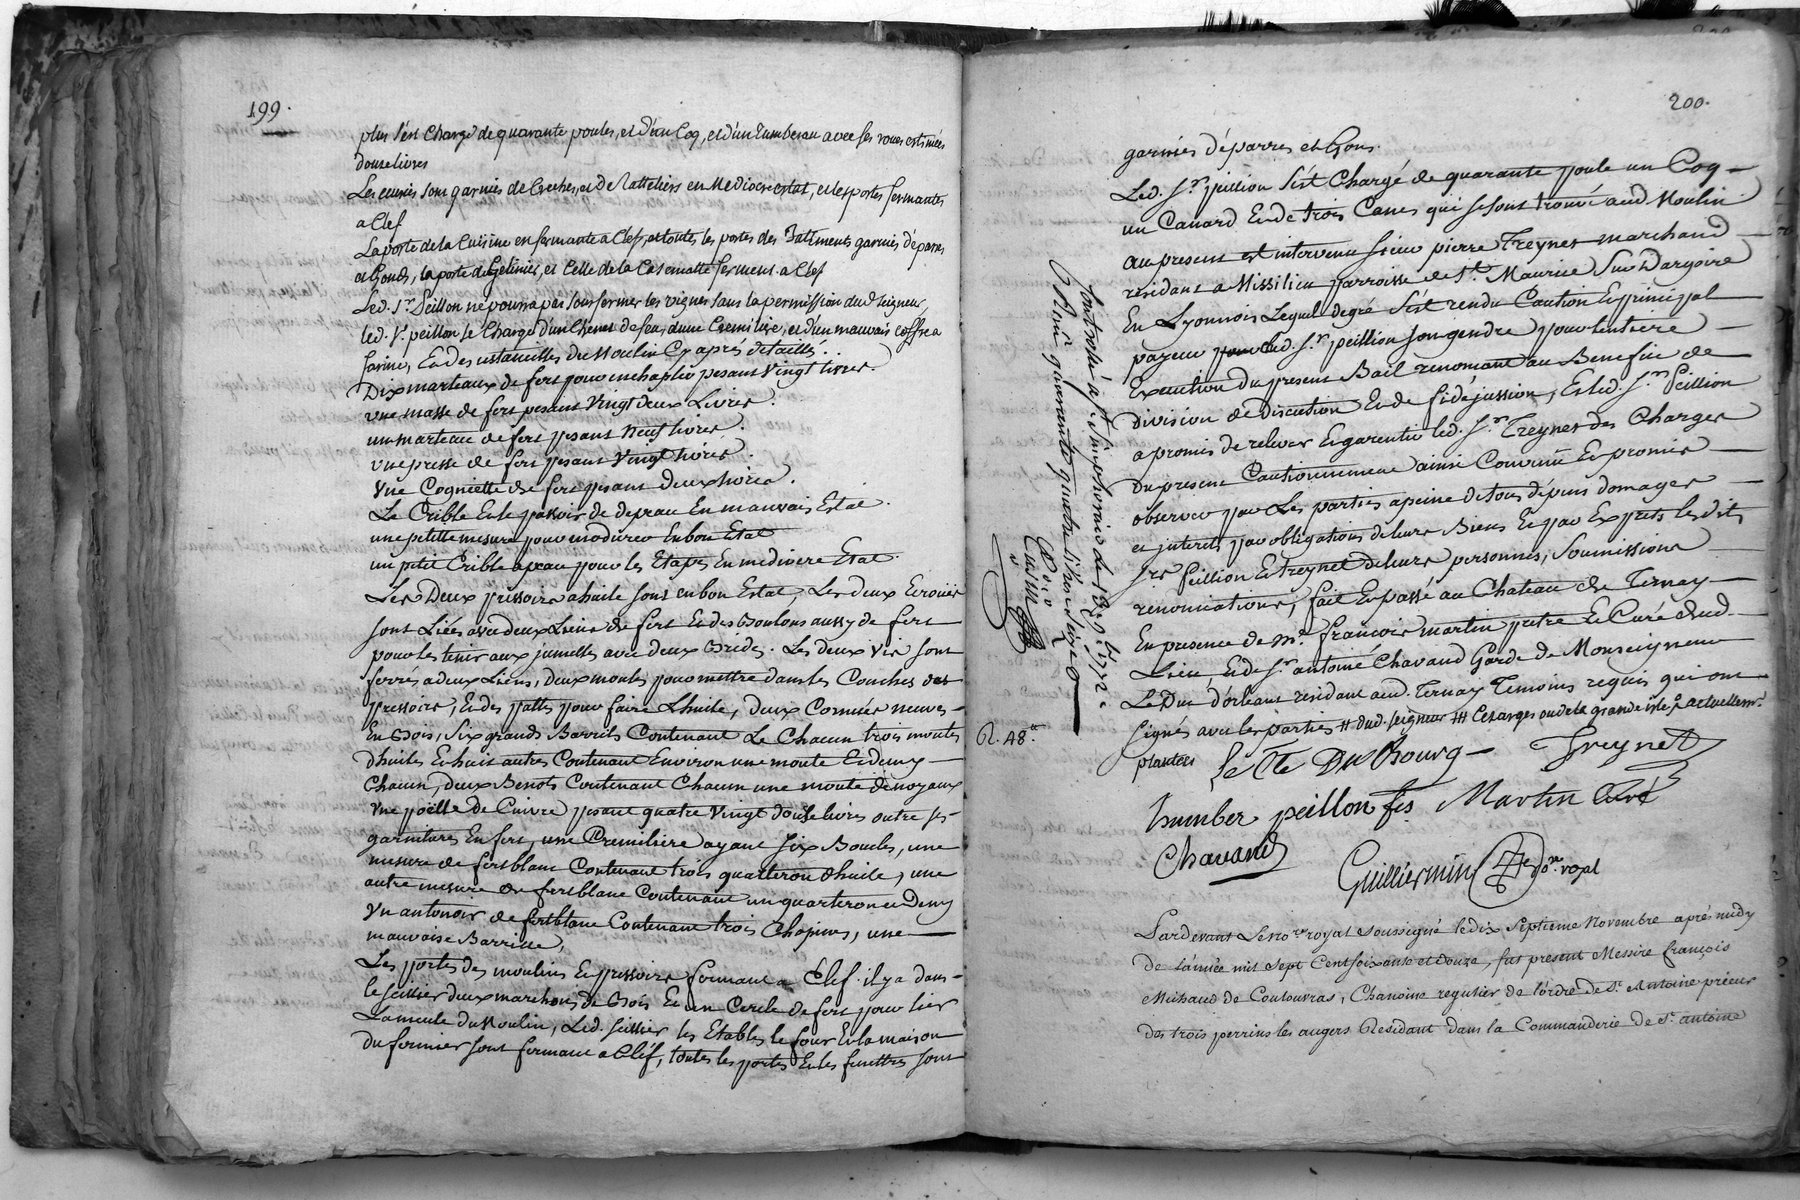 199.
plus s'est Chargé de quarante poules, et d'un Coq, et d'un Tumbereau avec ses roues estimées
douse livres
Les ecuries sont garnies de Creches, et de Ratteliers en Mediocre estat, et les portes fermantes
a Clef
La porte de la Cuisine en fermante a Clef, et toutes les portes des Batiments garnies d'eparres
et gonds, la porte de Gelinier, et Celle de la Casematte ferment a Clef
Led. Sr. Peillon ne pourra pas sousfermer les vignes sans la permission dud seigneur,
led. Sr. peillon se Charge d'un Chenet de feu, d'une Cremilière, et d'un mauvais coffre a
farine, Et des ustancilles du Moulin Cy après detaillés.
Dix marteaux de fert pour enchaplir pesant Vingt livres.
une masse de fert pesant Vingt deux Livres.
un marteau de fert pesant Neuf livres.
une presse de fert pesant Vingt livres.
Une Cogniette de fert pesant deux livres.
Le Crible Et le passoir de de peau En mauvais Estat.
une petitte mesure pour modurer En bon Etat
un petit Crible a peau pour les Etapes En mediocre Etat.
Les Deux pressoirs a huile sont en bon Estat, Les deux Ecroües
sont Liées avec deux Liens de fert Et des Boulons aussy de fert
pour les tenir aux jumelles avec deux Brides. Les deux Vis sont
ferrés a deux Liens, deux moules pour mettre dans les Couches des
pressoirs, Et des pattes pour faire Lhuile, deux Cornües neuves
En Bois, Six grands Barrils Contenant Le Chacun trois moutes
d'huiles Et huit autres Contenant Environ une moute Et demy
Chacun, deux Benots Contenant Chacun une moute de noyaux
Une poëlle de Cuivre pesant quatre Vingt douse livres outre ses
garnitures En fert, une Cremiliere ayant six Boucles, une
mesure de fert blanc Contenant trois quarteron d'huile, une
autre mesure de fert blanc Contenant un quarteron et Demy
Un antonoir de fert blanc Contenant trois Chopines, une
mauvaise Barrique,
Les portes des moulins Et pressoirs fermant a Clef. il y a dans
le scillier deux marchons de Bois Et un Cercle de fert pour lier
La meule du Moulin, Led. scillier les Etables le four Et la maison
du fermier sont fermant a Cléf, toutes les portes Et les fenettres sont
200.
garnies d'éparres et Gons.
Led. Sr. peillion s'est Chargé de quarante poule un Coq
un Canard Et de trois Canes qui se sont trouvé aud Moulin
Au present est intervenu Sieur pierre Treynet marchand
residant a Missilieu parroisse de St. Maurice Sur Dargoire
En Lyonnois Lequel degré s'est rendu Caution Et principal
payeur pour led. Sr. peillion son gendre pour lentiere
Execution du present Bail renonçant au Benefice de
Division de Discution Et de fidejussion, Et led. Sr. Peillion
a promis de relever Et garentir led. Sr. Treynet des Charges
Du present Cautionnement ainsi Convenu Et promis
observer par Les parties a peine de tous dépens domages
et interets, par obligations de leurs Biens Et par Exprès lesdits
Srs Peillion Et treynet de leurs personnes, Soumissions
renonciations, fait Et passé au Chateau de Ternay
En presence de Mr. françois martin prêtre Et Curé dud.
Lieu, Et de Sr. antoine Chavand Garde de Monseigneur
Le Duc d'orleans residant aud. Ternay Temoins requis qui ont
Signés avec les parties # dud. seigneur ### Et charges au dela grande isle, actuellemt.
plantées Le Cte Du Bourg Treynet
humber peillon fis Martin Curé
Chavand Guilliermin Nore. royal
Controllé a St. Simphorien le 18 9bre 1772.
Reçu quarante quatre livres
R. 48 #
Pardevant Le nore royal soussigné le dix Septieme Novembre après midy
De l'année mil Sept Cent soixante et douze, fut present Messire françois
Michaud de Coutouvras, Chanoine regulier de l'ordre de St. Antoine prieur
Des trois perrins les augers Residant dans la Commanderie de St. antoine